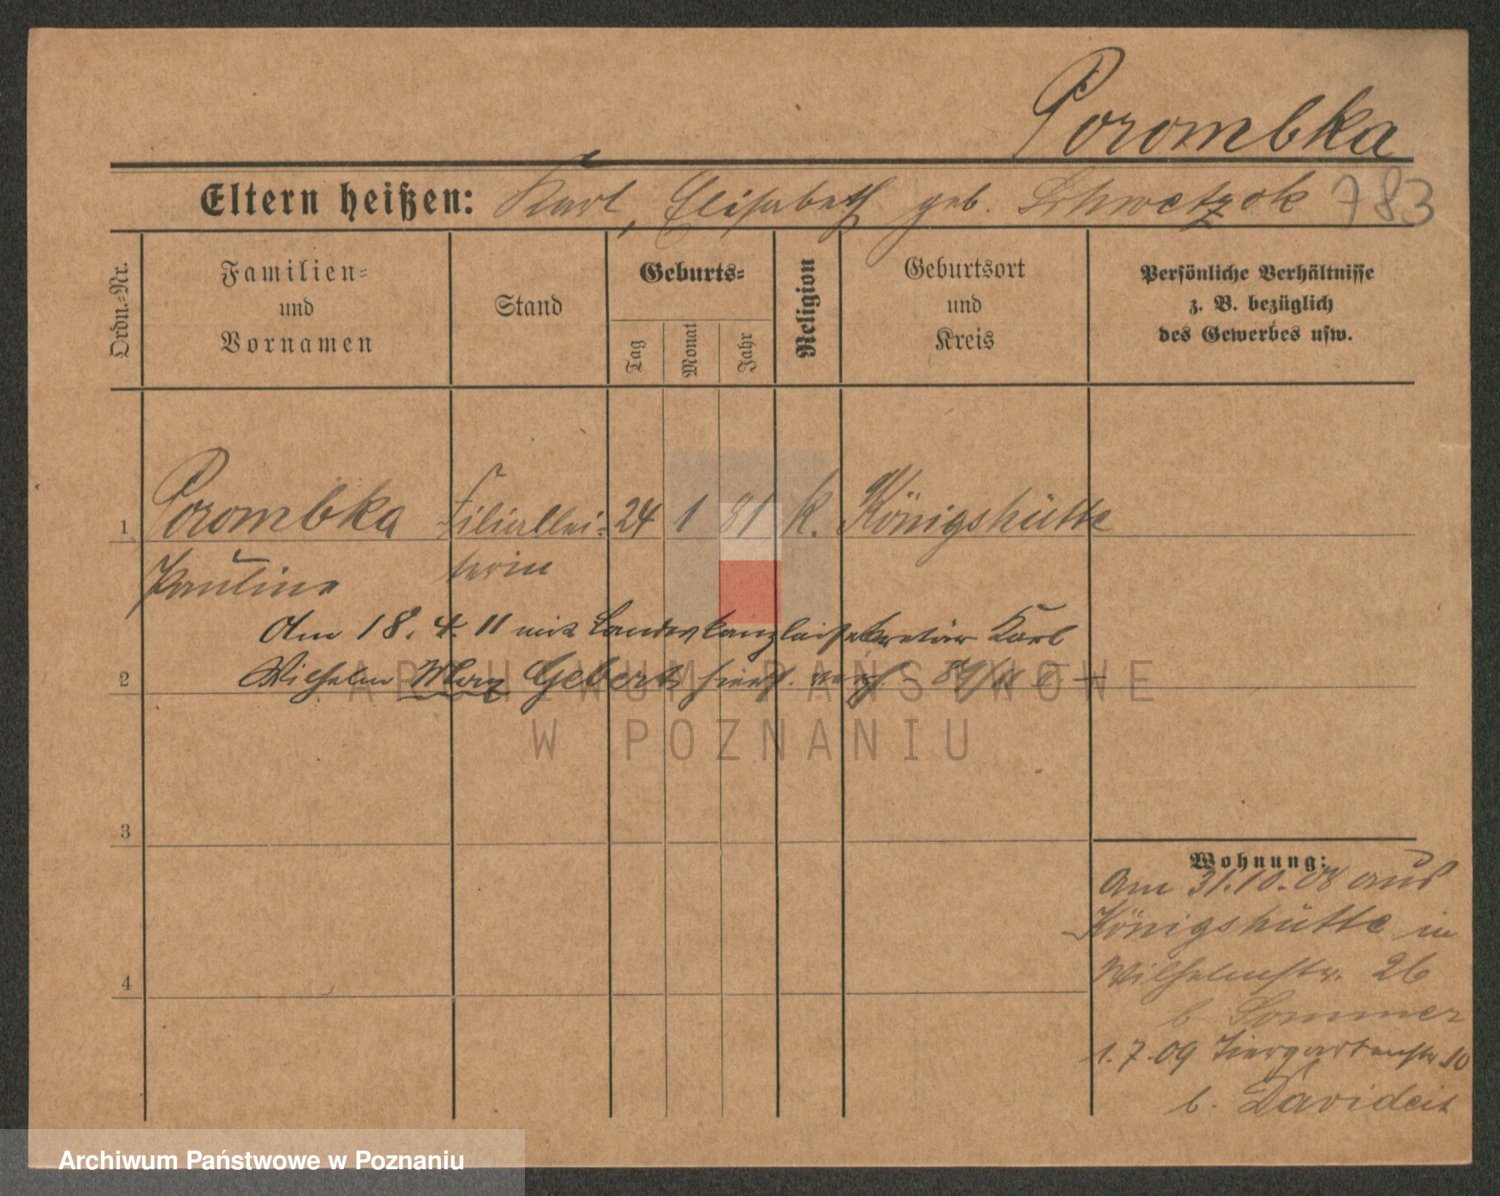 Porombka
Eltern heißen: Karl, Elisabeth geb. Schwetzok 783
Ordn.=Nr.
Familien=
und
Vornamen
Stand
Geburts=
Tag
Monat
Jahr
Religion
Geburtsort
und
Kreis
Persönliche Verhältnisse
z. B. bezüglich
des Gewerbes usw.
1 Porombka Filiallei= 24 1 81 k. Königshütte
Pauline terin
Am 18. 4. 11 mit Landeskanzleisekretär Karl
2 Wilhelm Max Gebert hier
ARCHIWUM PAŃSTWOWE
W POZNANIU
3
4
Wohnung:
Am 31.10.08 aus
Königshütte in
Wilhelmstr. 26
b Sommer
1.7.09 Tiergartenstr 10
b. Davideit
Archiwum Państwowe w Poznaniu